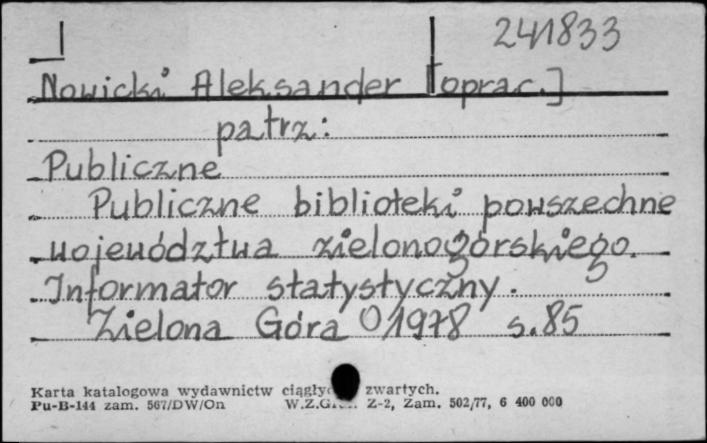 241833
Nowicki Aleksander [oprac.]
patrz:
Publiczne
Publiczne biblioteki powszechne
województwa zielonogórskiego.
Informator statystyczny.
Zielona Góra 1978 s. 85
Karta katalogowa wydawnictw zwartych.
Pu-B-144 zam. 567/DW/On W.Z.Graf. Z-2, Zam. 502/77, 6 400 000